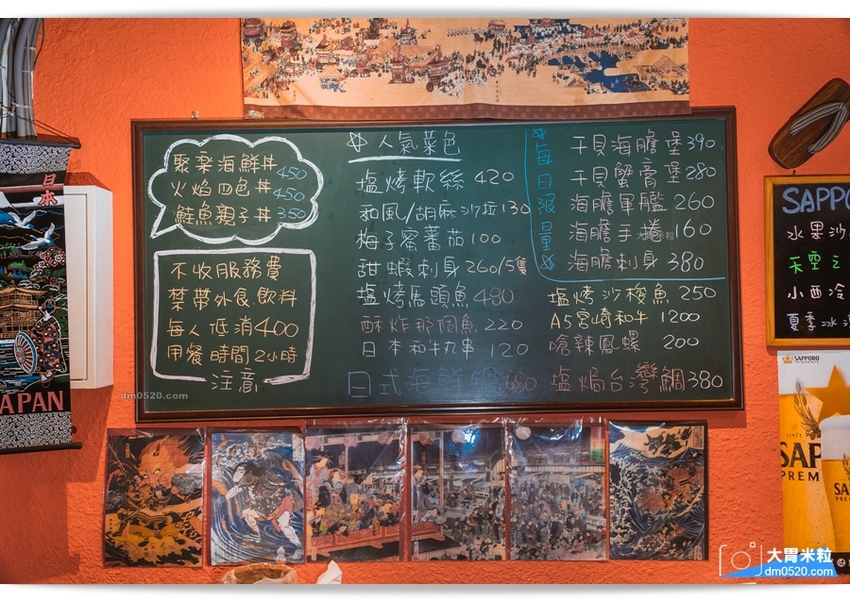 日本
JAPAN
聚樂海鮮丼 450
火焰四色丼 450
鮭魚親子丼 350
不收服務費
禁帶外食.飲料
每人低消400
用餐時間2小時
注意
dm0520.com
☆人氣菜色
塩烤軟絲 420
和風/胡麻沙拉 130
梅子蜜蕃茄 100
甜蝦刺身 260/5隻
塩烤馬頭魚 480
酥炸那個魚 220
日本和牛丸串 120
日式海鮮鍋 680
☆每日限量☆
干貝海膽堡 390
干貝蟹膏堡 280
海膽軍艦 260
海膽手捲 160
海膽刺身 380
塩烤沙梭魚 250
A5宮崎和牛 1200
嗆辣鳳螺 200
塩焗台灣鯛 380
SAPPO
水果沙
天空之
小西冷
夏季冰
SAPPORO
SINCE
SAP
PREM
大胃米粒
dm0520.com